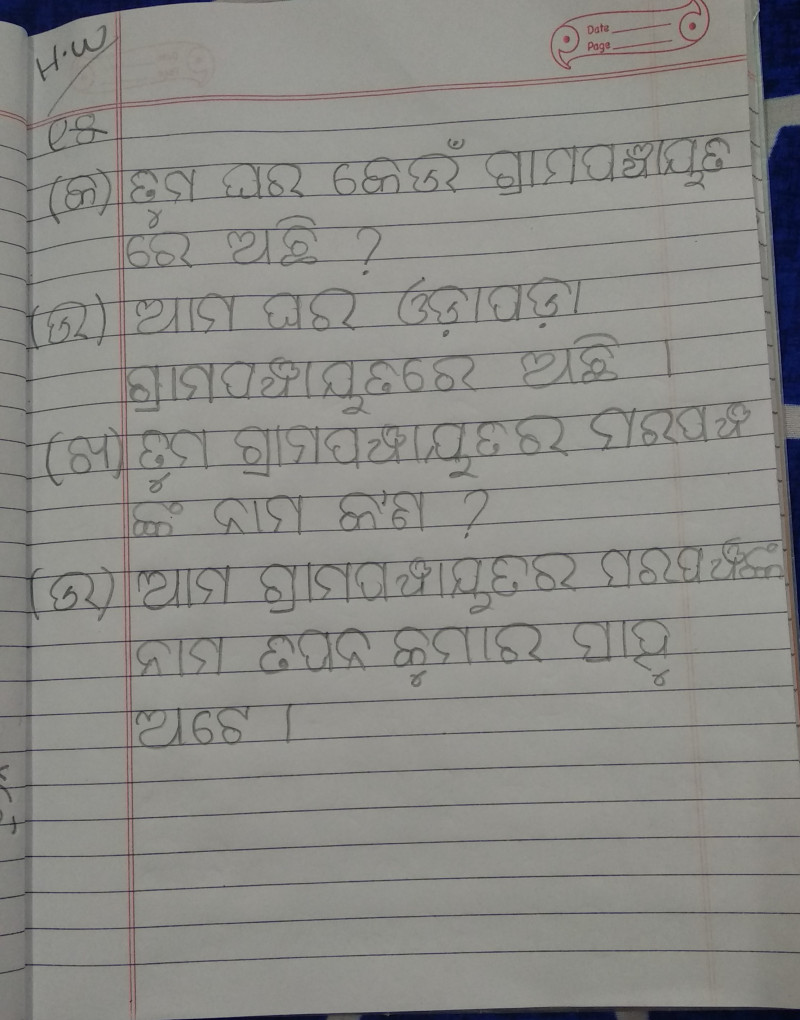 H.W
(କ) ତୁମ ଘର କେଉଁ ଗ୍ରାମପଞ୍ଚାୟତ
ରେ ଅଛି ?
(ଉ) ଆମ ଘର
ଗ୍ରାମପଞ୍ଚାୟତରେ ଅଛି ।
(ଖ) ତୁମ ଗ୍ରାମପଞ୍ଚାୟତର ସରପଞ୍ଚ
ଙ୍କ ନାମ କ'ଣ ?
(ଉ) ଆମ ଗ୍ରାମପଞ୍ଚାୟତର ସରପଞ୍ଚଙ୍କ
ନାମ
ଅଟେ ।
Date
Page